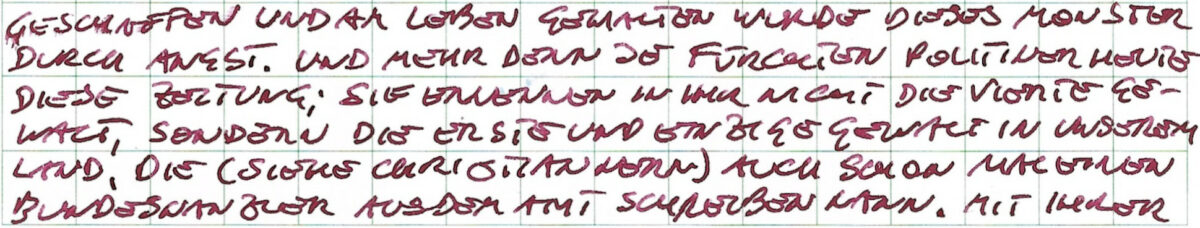 GESCHAFFEN UND AM LEBEN GEHALTEN WURDE DIESES MONSTER
DURCH ANGST. UND MEHR DENN JE FÜRCHTEN POLITIKER HEUTE
DIESE ZEITUNG; SIE ERKENNEN IN IHR NICHT DIE VIERTE GE-
WALT, SONDERN DIE ERSTE UND EINZIGE GEWALT IN UNSEREM
LAND, DIE (SIEHE CHRISTIAN KERN) AUCH SCHON MAL EINEN
BUNDESKANZLER AUS DEM AMT SCHREIBEN KANN. MIT IHRER